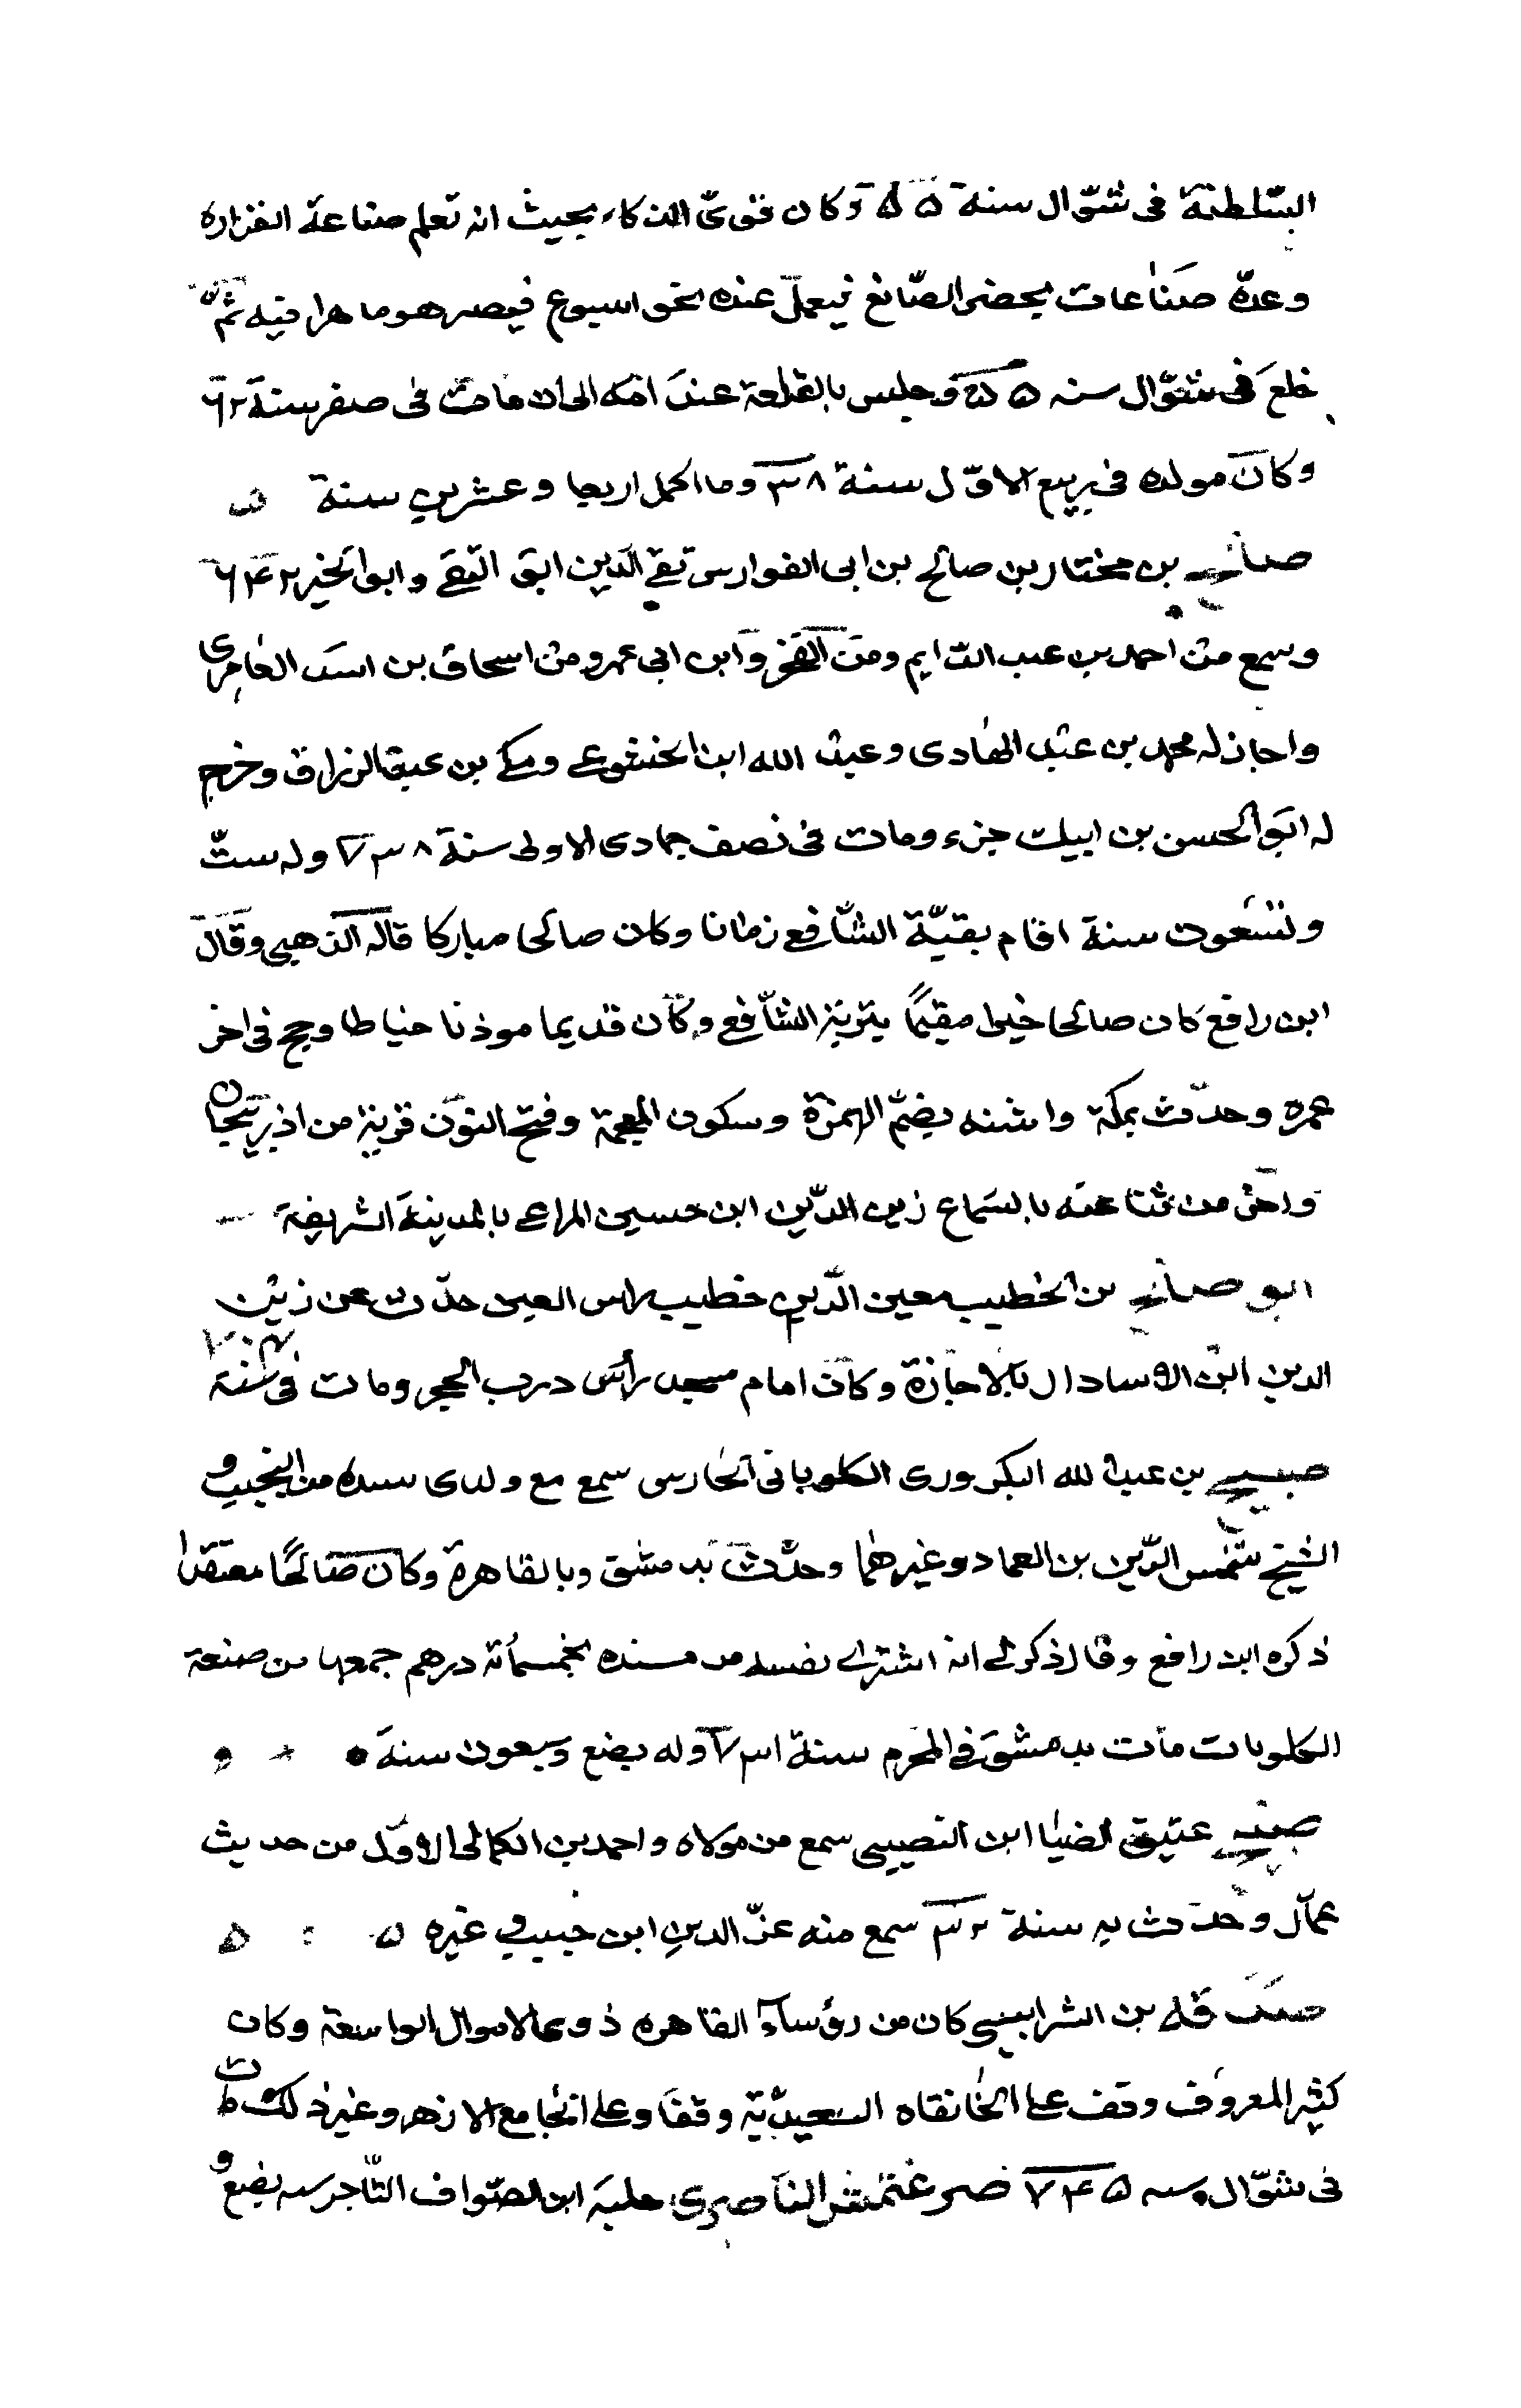 السّلطنة فى شوّال سنة ۵۵ وكان قوىّ الذكاء بحيث انه تعلم صناعة الفزاره
وعدّة صناعات يحضر الصّانع فيعمل عنده نحو اسبوع فيصر هو ماهرا فيه ثمّ
خلع فى شوّال سنه ۵۵ وجلس بالقلعة عند امّه الى ان مات فى صفر سنة ٦٢
وكان مولده فى ربيع الاوّل سنة ٣٨ وما اكمل اربعا وعشرين سنة
صالح بن مختار بن صالح بن ابى الفوارس تقي الدّين ابو التقي وابو الخير ٦۴٢
وسمع من احمد بن عبد الدّايم ومن الفخر وابن ابى عمر ومن اسحاق بن اسد العامرى
واجاز له محمد بن عبد الهادى وعبد الله ابن الخشوعي ومكي بن عبد الرزاق وخرج
له ابو الحسن بن ايبك جزء ومات فى نصف جمادى الاولى سنة ٧٣٨ وله ستّ
وتسعون سنة اقام بقبّة الشّافعي زمانا وكان صالحا مباركا قاله الذهبي وقال
ابن رافع كان صالحا خيرا مقيمًا بتربة الشّافعي وكان قديما موذنا خياطا وحج فى اخر
عمره وحدّث بمكة واشنه بضمّ الهمزة وسكون المعجمة وفتح النون قرية من اذربيجان
واخر من ثنا عنه بالسّماع زين الدّين ابن حسين المراغي بالمدينة الشريفة
ابو صالح بن الخطيب معين الدّين خطيب راس العين حدّث عن زين
الدين ابن الاسادال بالاجازة وكان امام مسجد رأس درب الحجر ومات فى سنة ٧٠٣
صبيح بن عبد لله البكرورى الكلوباتى الحارسى سمع مع ولدى سيده من النجيب و
الشيخ شمس الدّين بن العماد وغيرهما وحدّث بدمشق وبالقاهرة وكان صالحًا معتقدا
ذكره ابن رافع وقال ذكر لي انه اشترى نفسه من سيده بخمسمأئة درهم جمعها من صنعة
الكلوبات مات بدمشق فى المحرم سنة ٧٣١ وله بضع وسبعون سنة
صبيح عتيق الضيا ابن النصيبى سمع من مولاه واحمد بن الكمالى الاوّل من حديث
عمال وحدّث به سنة ٣٢ سمع منه عزّ الدين ابن حبيب وغيره
صدقه بن الشرابيشى كان من رؤساء القاهره ذوى الاموال الواسعة وكان
كثير المعروف وقف على الخانقاه السعيديّة وقفا وعلى الجامع الازهر وغير ذلك مات
فى شوّال سنه ٧۴۵ صرغتمش الناصرى جلبه ابن الصّواف التّاجر سنه بضع و